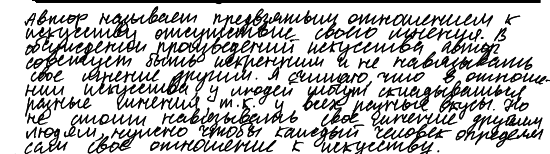 Автор называет предвзятым отношением к
искусству отсутствие своего мнения. В
обсуждении произведений искусства автор
советует быть искренним и не навязывать
свое мнение другим. Я считаю что в отноше-
нии искусства у людей могут складываться
разные мнения т.к. у всех разные вкусы. Но
не стоит навязывать свое мнение другим
людям, нужно чтобы каждый человек определял
сам свое отношение к искусству.